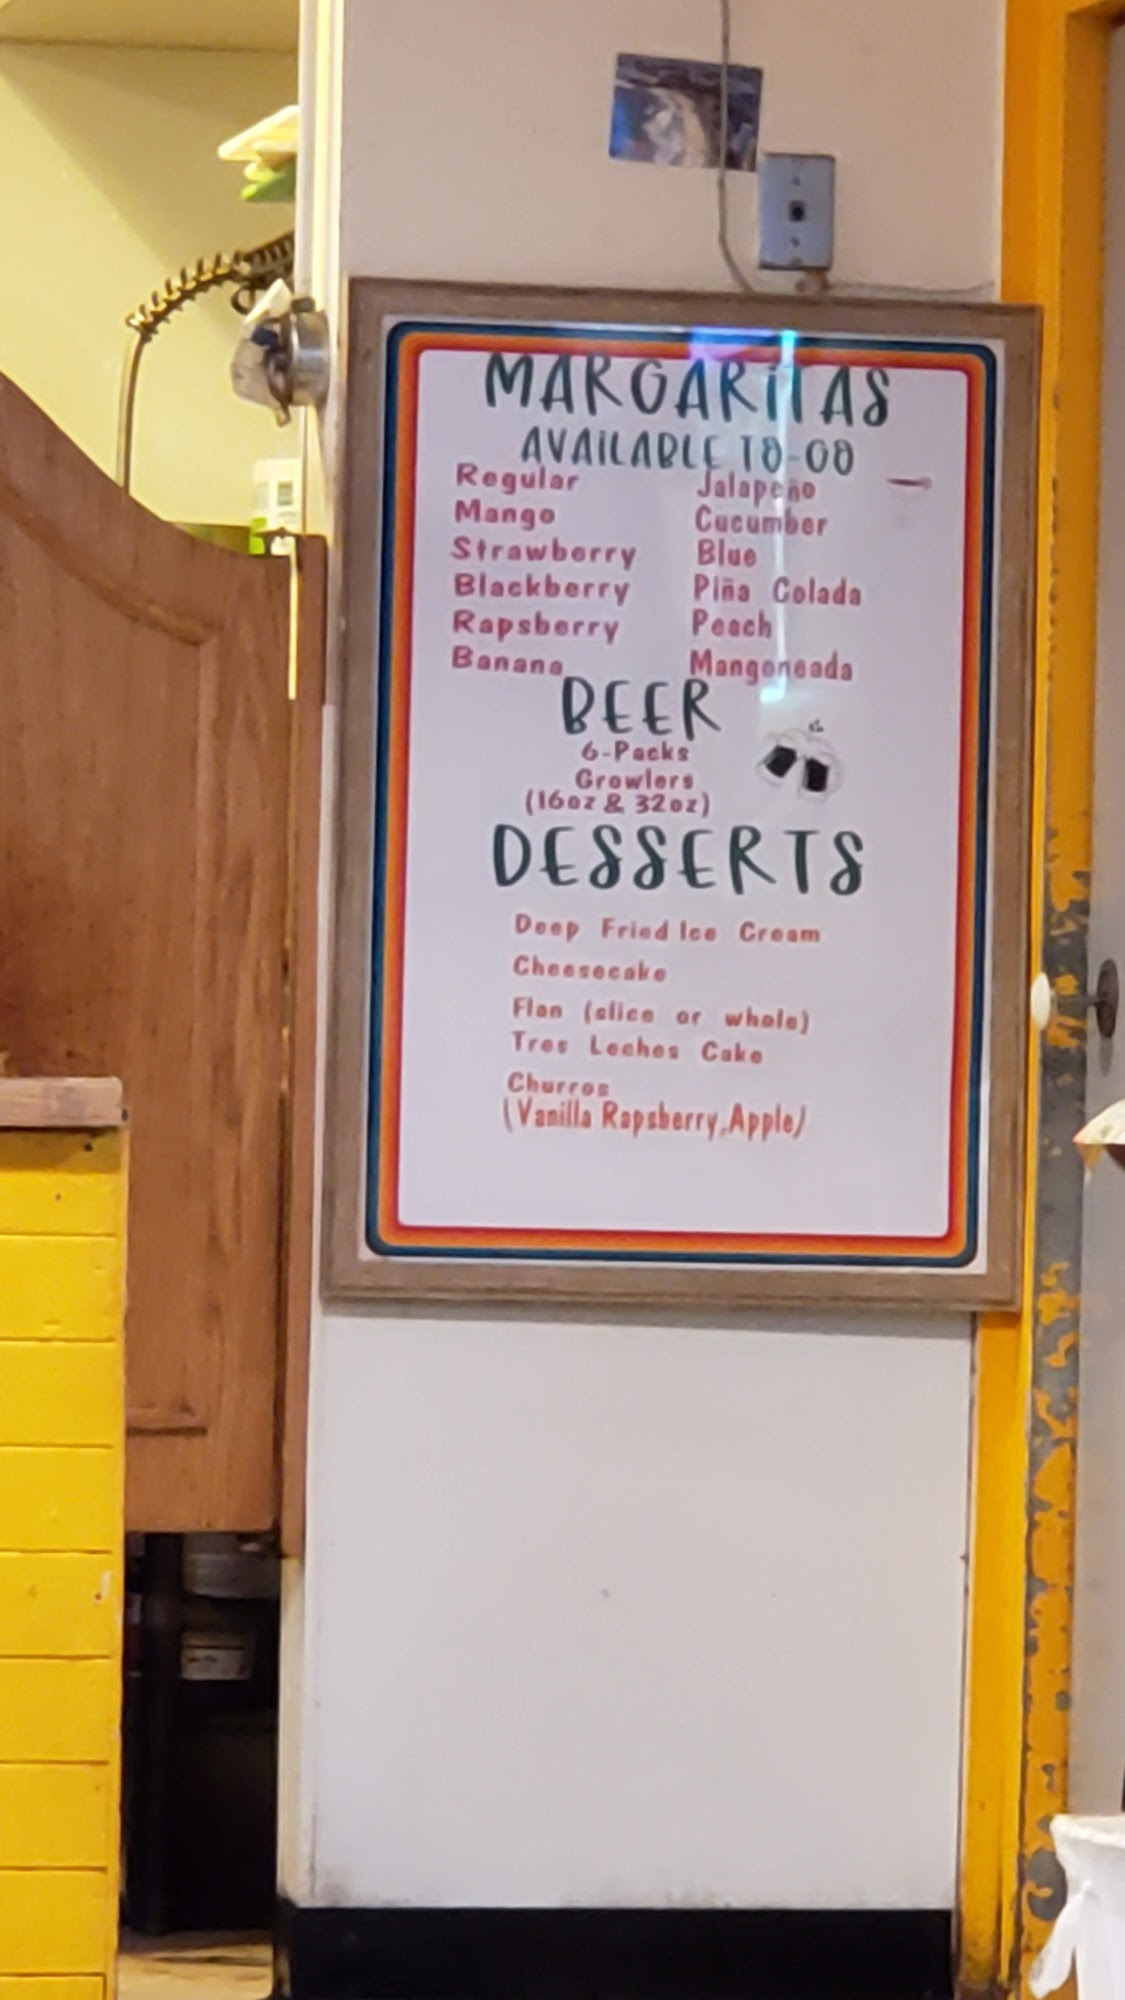 MARGARiTAS
AVAiLABLE TO-GO
Regular
Mango
Strawberry
Blackberry
Rapsberry
Banana
Jalapeño
Cucumber
Blue
Piña Colada
Peach
Mangoneada
BEER
6-Packs
Growlers
(16oz & 32oz)
DESSERTS
Deep Fried Ice Cream
Cheesecake
Flan (slice or whole)
Tres Leches Cake
Churros
(Vanilla Rapsberry,Apple)